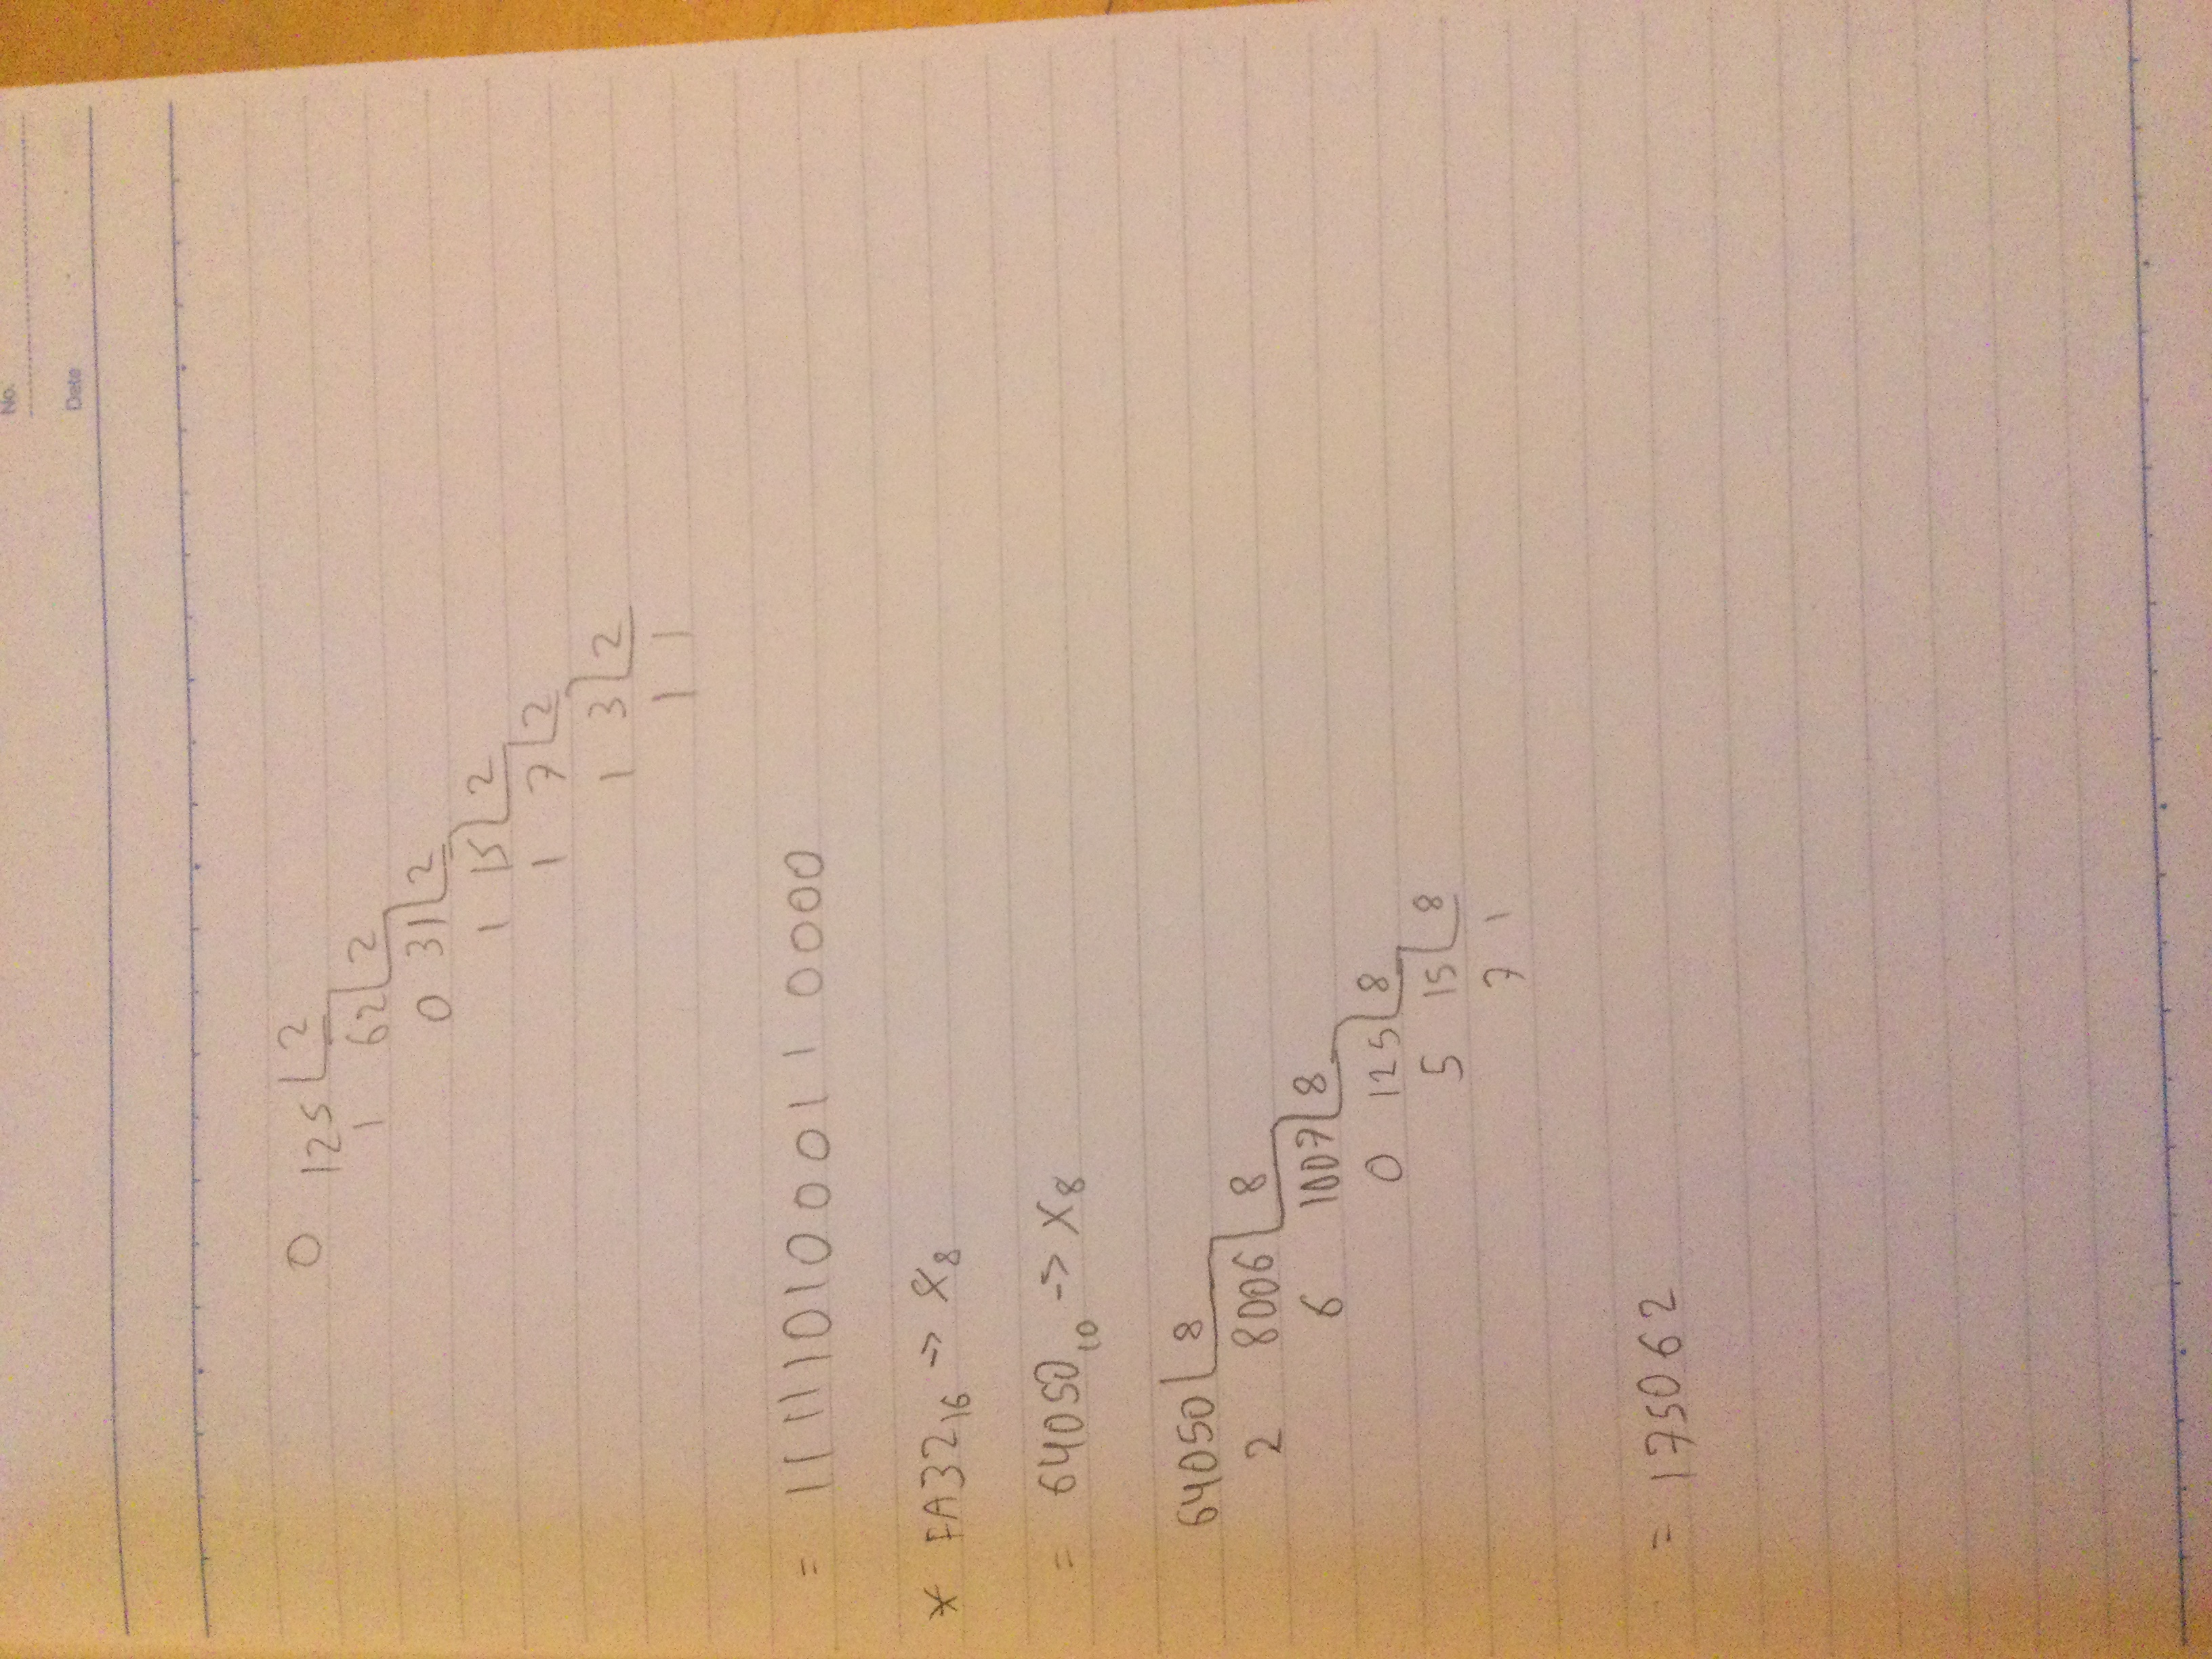 No.
Date
0 125 2
1 62 2
0 31 2
1 15 2
1 7 2
1 3 2
1 1
= 1111101000110000
* FA32₁₆ -> X₈
= 64050₁₀ -> X₈
64050 8
2 8006 8
6 1007 8
0 125 8
5 15 8
7 1
= 175062